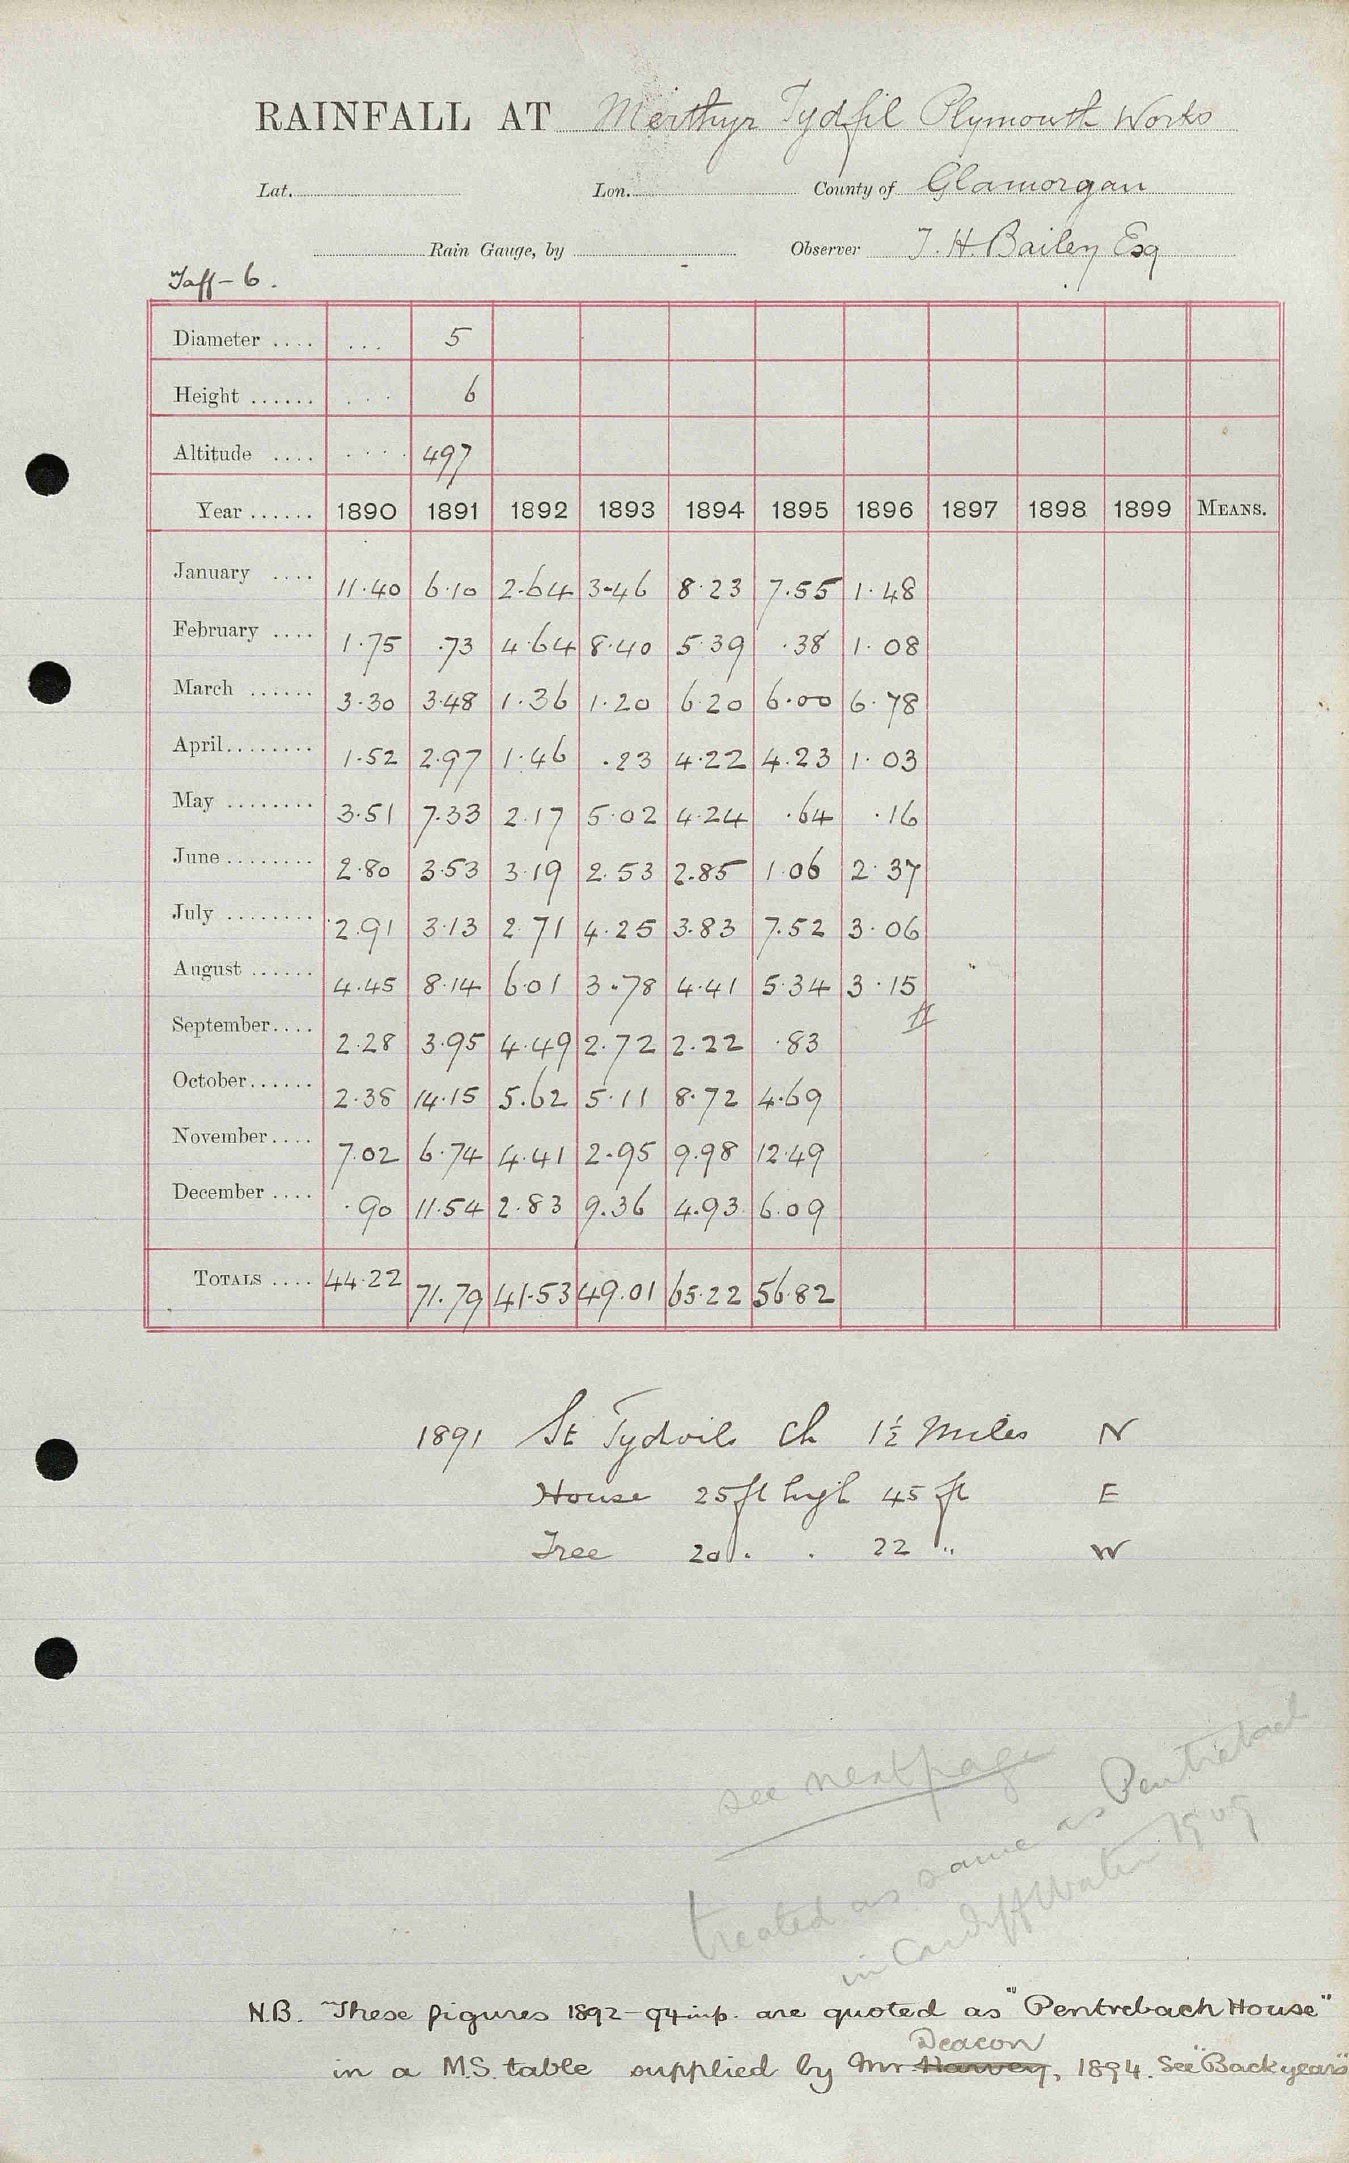 RAINFALL AT Merthyr Tydfil Plymouth Works
Lat. Lon. County of Glamorgan
Rain Gauge, by Observer T. H. Bailey Esq
Taff - 6.
Diameter .... ... 5
Height ...... ... 6
Altitude .... .... 497
Year ...... 1890 1891 1892 1893 1894 1895 1896 1897 1898 1899 MEANS.
January .... 11.40 6.10 2.64 3.46 8.23 7.55 1.48
February .... 1.75 .73 4.64 8.40 5.39 .38 1.08
March ...... 3.30 3.48 1.36 1.20 6.20 6.00 6.78
April........ 1.52 2.97 1.46 .23 4.22 4.23 1.03
May ........ 3.51 7.33 2.17 5.02 4.24 .64 .16
June ........ 2.80 3.53 3.19 2.53 2.85 1.06 2.37
July ........ 2.91 3.13 2.71 4.25 3.83 7.52 3.06
August ...... 4.45 8.14 6.01 3.78 4.41 5.34 3.15
September.... 2.28 3.95 4.49 2.72 2.22 .83
October...... 2.38 14.15 5.62 5.11 8.72 4.69
November.... 7.02 6.74 4.41 2.95 9.98 12.49
December .... .90 11.54 2.83 9.36 4.93 6.09
TOTALS .... 44.22 71.79 41.53 49.01 65.22 56.82
1891 St Tydvils Ch 1½ Miles N
House 25 ft high 45 ft E
Tree 20 . . 22 " W
see next page
treated as same as Pentrebach
in Cardiff Water 1909
N.B. These figures 1892-94 inp. are quoted as "Pentrebach House"
in a M.S. table supplied by Mr Harvey Deacon, 1894. See "Back years"